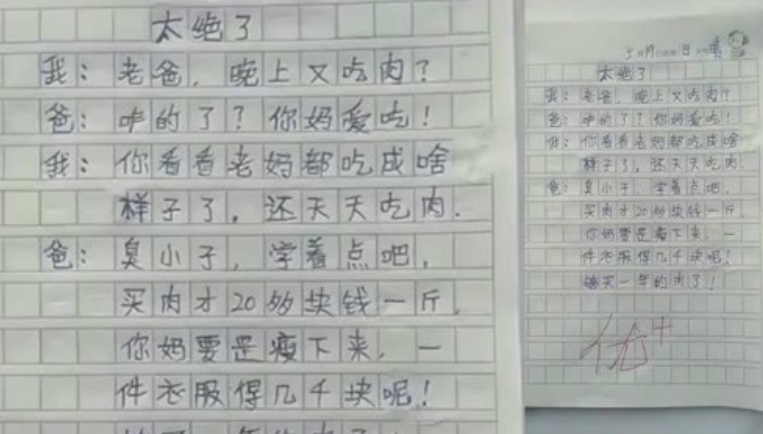 太绝了
我：老爸，晚上又吃肉？
爸：咋的了？你妈爱吃！
我：你看看老妈都吃成啥
样子了，还天天吃肉.
爸：臭小子，学着点吧，
买肉才20多块钱一斤，
你妈要是瘦下来，一
件衣服得几千块呢！
太绝了
我：老爸，晚上又吃肉？
爸：咋的了？你妈爱吃！
我：你看看老妈都吃成啥
样子了，还天天吃肉.
爸：臭小子，学着点吧，
买肉才20多块钱一斤，
你妈要是瘦下来，一
件衣服得几千块呢！
够买一年的肉了！
优+